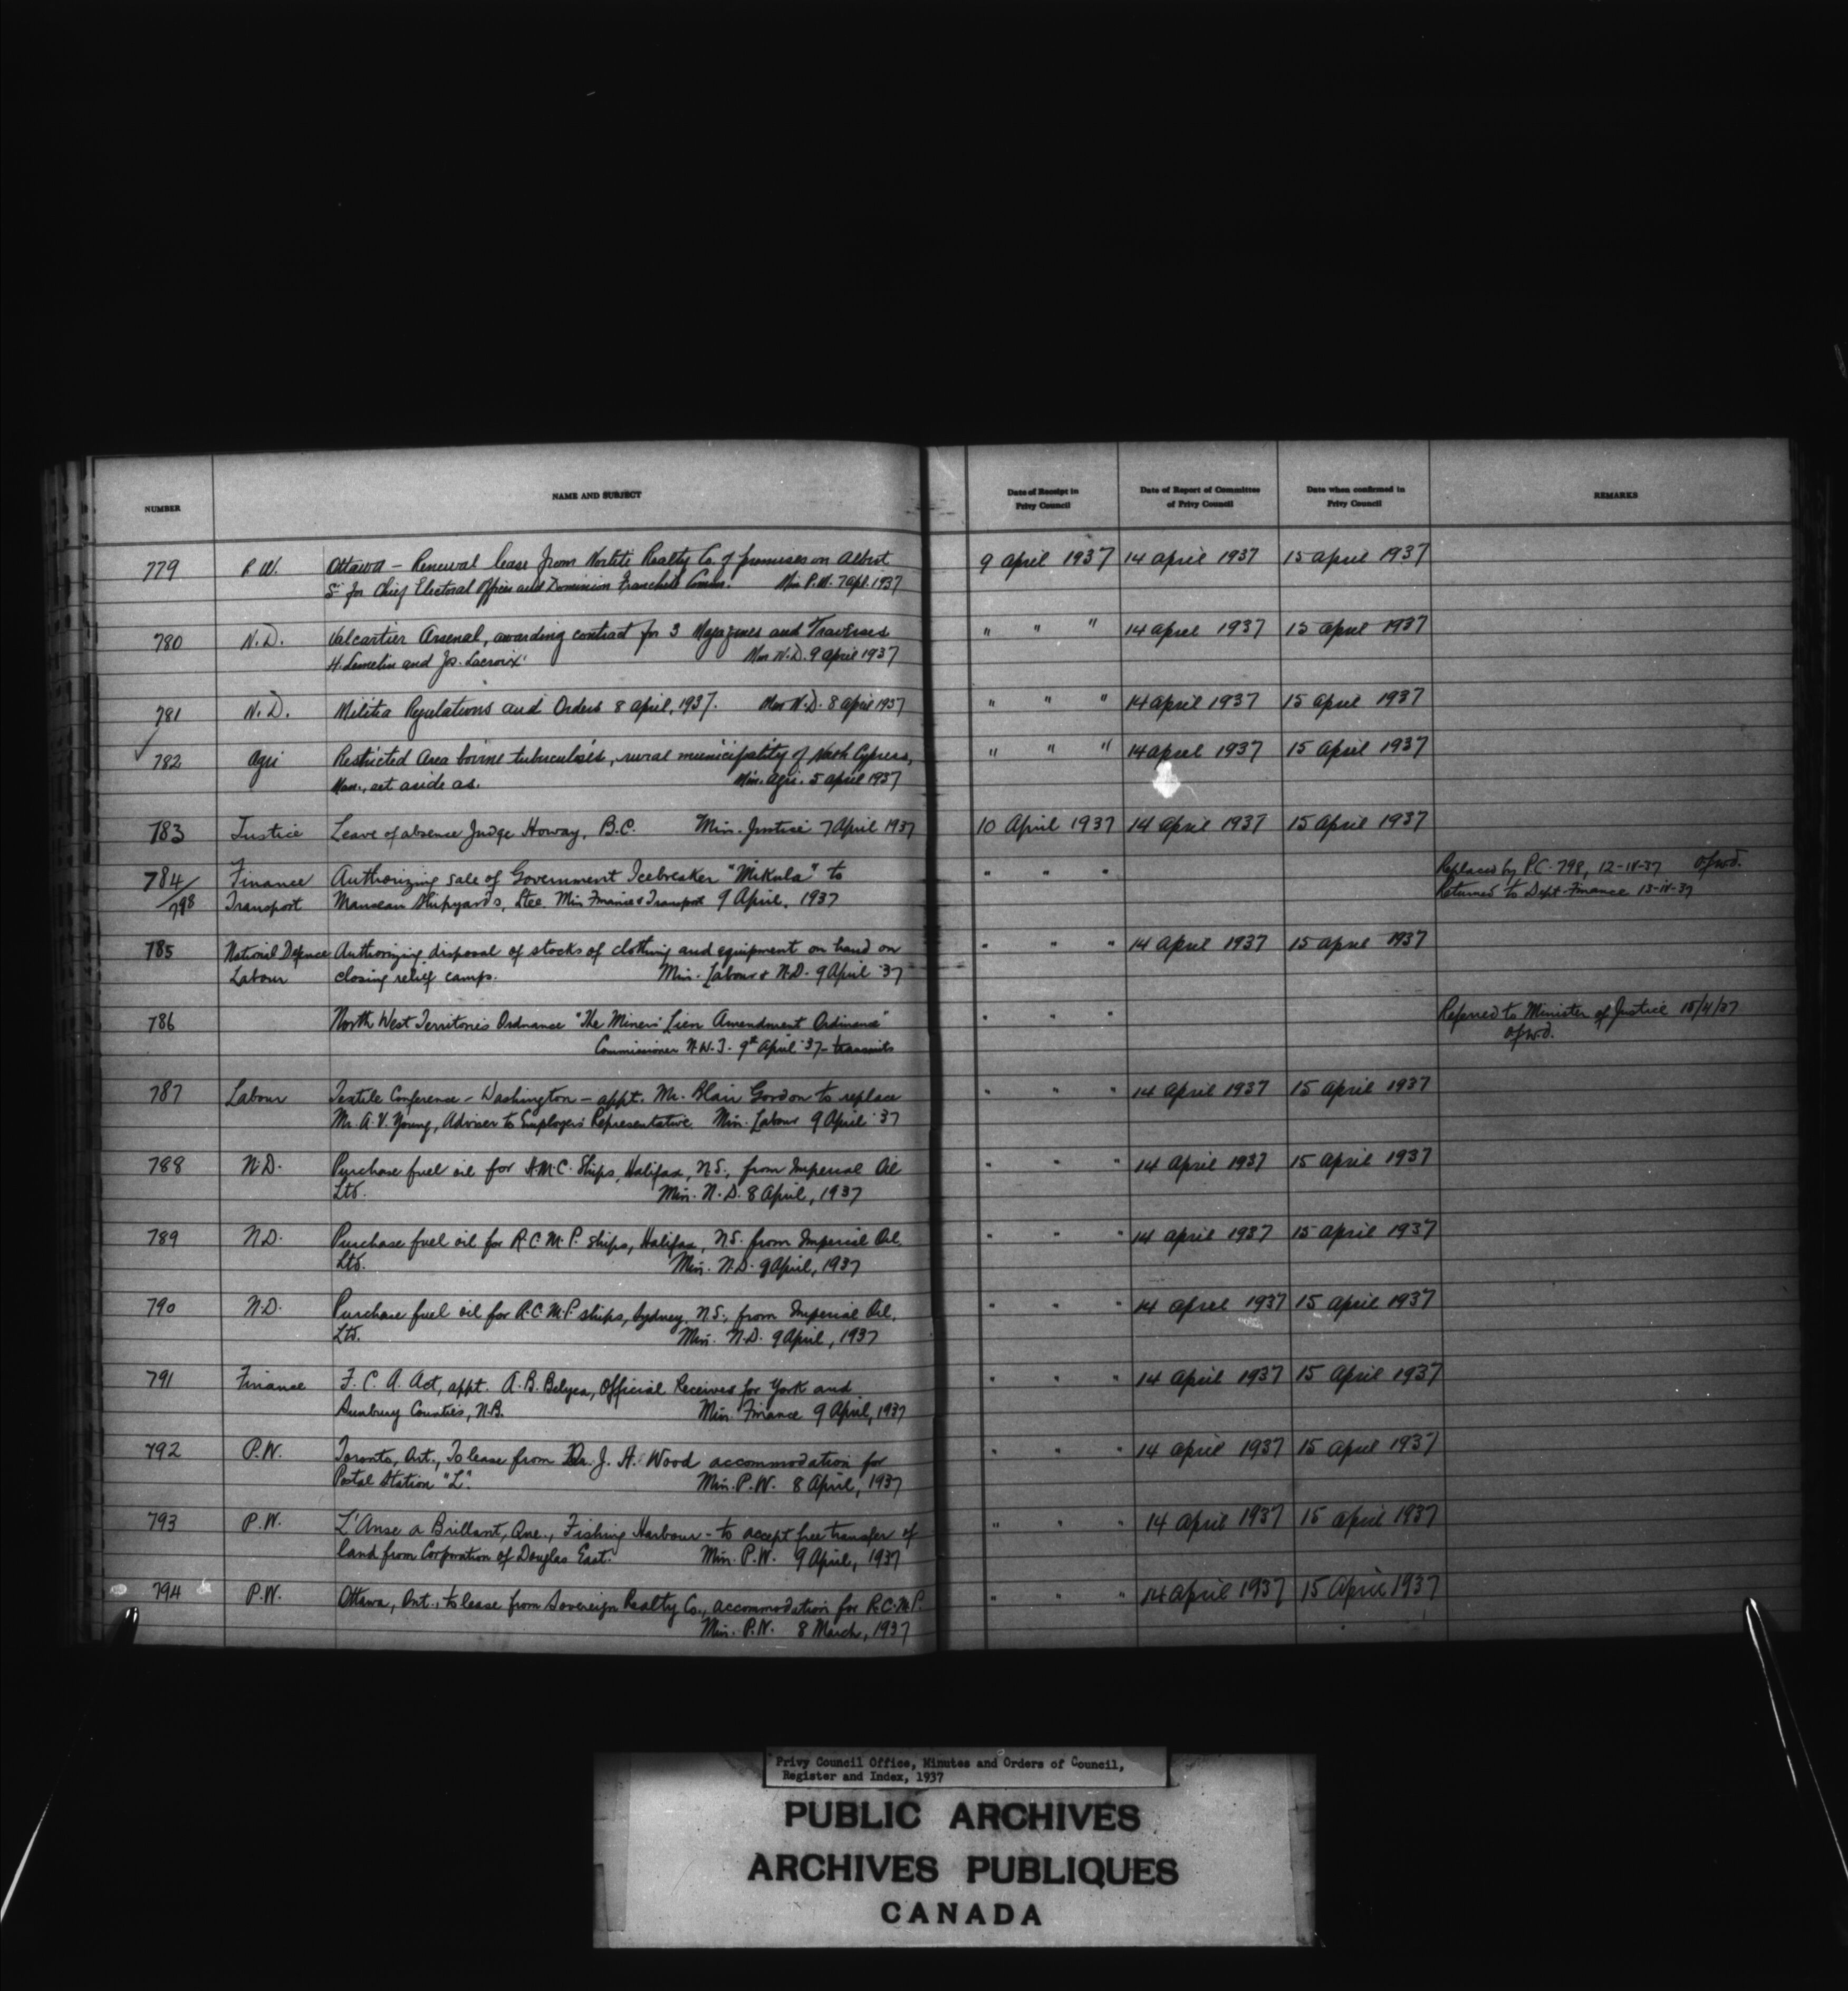 NUMBER
NAME AND SUBJECT
Date of Receipt in
Privy Council
Date of Report of Committee
of Privy Council
Date when confirmed in
Privy Council
REMARKS
779 P.W. Ottawa - Renewal lease from Realty Co. of premises on Albert 9 April 1937 14 April 1937 15 April 1937
St for Chief Electoral Officer and Dominion Franchise Comm. Min P.W. 7 Apl. 1937
780 N.D. Valcartier Arsenal, awarding contract for 3 Magazines and Traverses " " " 14 April 1937 15 April 1937
H. Lemelin and Jos. Lacroix. Min N.D. 9 April 1937
781 N.D. Militia Regulations and Orders 8 April, 1937. Min N.D. 8 April 1937 " " " 14 April 1937 15 April 1937
782 Agri Restricted Area bovine tuberculosis, rural municipality of North Cypress, " " " 14 April 1937 15 April 1937
Man., set aside as. Min. Agri. 5 April 1937
783 Justice Leave of absence Judge Howay, B.C. Min. Justice 7 April 1937 10 April 1937 14 April 1937 15 April 1937
784/ Finance Authorizing sale of Government Icebreaker "Mikula" to " " " Replaced by P.C. 798, 12-IV-37
798 Transport Manseau Shipyards, Ltee. Min Finance & Transport 9 April, 1937 Returned to Dept Finance 13-IV-37
785 National Defence Authorizing disposal of stocks of clothing and equipment on hand on " " " 14 April 1937 15 April 1937
Labour closing relief camps. Min. Labour & N.D. 9 April '37
786 North West Territories Ordnance "The Miners' Lien Amendment Ordinance" " " " Referred to Minister of Justice 15/4/37
Commissioner N.W.T. 9th April '37 - transmits
787 Labour Textile Conference - Washington - appt. Mr. Blair Gordon to replace " " " 14 April 1937 15 April 1937
Mr. A.V. Young, Adviser to Employers' Representative Min. Labour 9 April '37
788 N.D. Purchase fuel oil for H.M.C. Ships, Halifax, N.S., from Imperial Oil " " " 14 April 1937 15 April 1937
Ltd. Min. N.D. 8 April, 1937
789 N.D. Purchase fuel oil for R.C.M.P. ships, Halifax, N.S. from Imperial Oil. " " " 14 April 1937 15 April 1937
Ltd. Min. N.D. 9 April, 1937
790 N.D. Purchase fuel oil for R.C.M.P ships, Sydney, N.S., from Imperial Oil. " " " 14 April 1937 15 April 1937
Ltd. Min. N.D. 9 April, 1937
791 Finance F.C.A. Act, appt. A.B. Belyea, Official Receiver for York and " " " 14 April 1937 15 April 1937
Sunbury Counties, N.B. Min. Finance 9 April, 1937
792 P.W. Toronto, Ont., To lease from Dr. J. H. Wood accommodation for " " " 14 April 1937 15 April 1937
Postal Station "L". Min. P.W. 8 April, 1937
793 P.W. L'Anse a Brillant, Que., Fishing Harbour - to accept free transfer of " " " 14 April 1937 15 April 1937
land from Corporation of Douglas East. Min. P.W. 9 April, 1937
794 P.W. Ottawa, Ont., to lease from Sovereign Realty Co., accommodation for R.C.M.P. " " " 14 April 1937 15 April 1937
Min. P.W. 8 March, 1937
Privy Council Office, Minutes and Orders of Council,
Register and Index, 1937
PUBLIC ARCHIVES
ARCHIVES PUBLIQUES
CANADA